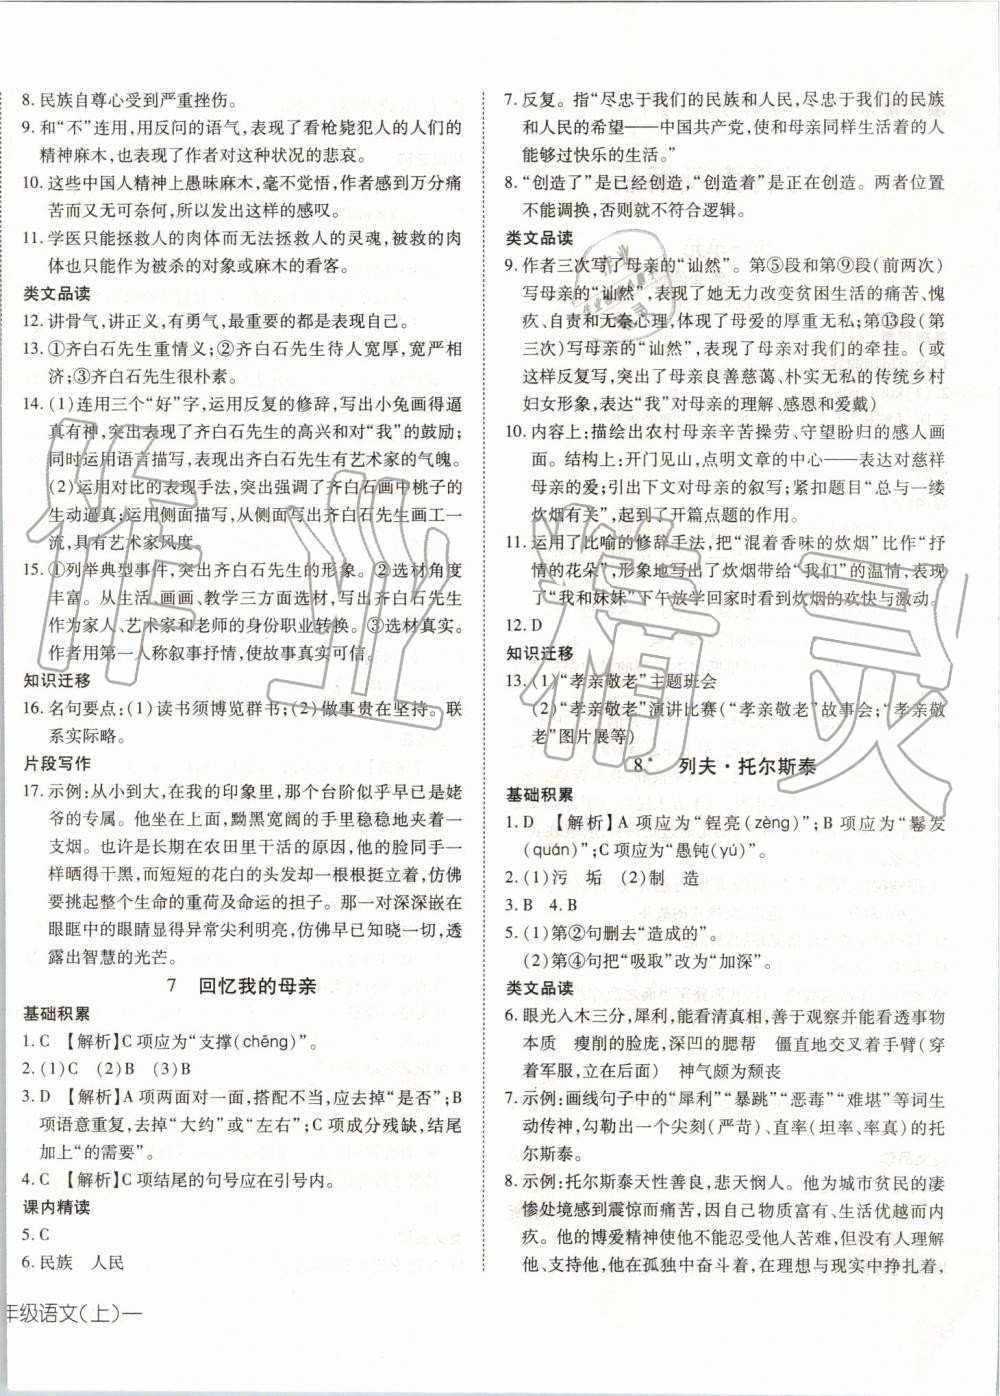 8. 民族自尊心受到严重挫伤。
9. 和“不”连用,用反问的语气,表现了看枪毙犯人的人们的
精神麻木,也表现了作者对这种状况的悲哀。
10. 这些中国人精神上愚昧麻木,毫不觉悟,作者感到万分痛
苦而又无可奈何,所以发出这样的感叹。
11. 学医只能拯救人的肉体而无法拯救人的灵魂,被救的肉
体也只能作为被杀的对象或麻木的看客。
类文品读
12. 讲骨气,讲正义,有勇气,最重要的是都表现自己。
13. ①齐白石先生重情义;②齐白石先生待人宽厚,宽严相
济;③齐白石先生很朴素。
14. (1)连用三个“好”字,运用反复的修辞,写出小兔画得逼
真有神,突出表现了齐白石先生的高兴和对“我”的鼓励;
同时运用语言描写,表现了齐白石先生有艺术家的气魄。
(2)运用对比的表现手法,突出强调了齐白石画中桃子的
生动逼真;运用侧面描写,从侧面写出齐白石先生画工一
流,具有艺术家风度。
15. ①列举典型事件,突出齐白石先生的形象。②选材角度
丰富。从生活、画画、教学三方面选材,写出了齐白石先生
作为家人、艺术家和老师的身份职业转换。③选材真实。
作者用第一人称叙事抒情,使故事真实可信。
知识迁移
16. 名句要点:(1)读书须博览群书;(2)做事贵在坚持。联
系实际略。
片段写作
17. 示例:从小到大,在我的印象里,那个台阶似乎早已是姥
爷的专属。他坐在上面,黝黑宽阔的手里稳稳地夹着一
支烟。也许是长期在农田里干活的原因,他的脸同手一
样晒得干黑,而短短的花白的头发却一根根挺立着,仿佛
要挑起整个生命的重荷及命运的担子。那一对深深嵌在
眼眶中的眼睛显得异常尖利明亮,仿佛早已饱经沧桑,透
露出智慧的光芒。
7 回忆我的母亲
基础积累
1. C 【解析】C项应为“支撑(chēng)”。
2. (1)C (2)B (3)B
3. D 【解析】A项两面对一面,搭配不当,应去掉“是否”;B
项语意重复,去掉“大约”或“左右”;C项成分残缺,结尾
加上“的需要”。
4. C 【解析】C项结尾的句号应在引号内。
课内精读
5. C
6. 民族 人民
年级语文(上)一
7. 反复。指“尽忠于我们的民族和人民,尽忠于我们的民族
和人民的希望——中国共产党,使和母亲同样生活着的人
能够过快乐的生活。”
8. “创造了”是已经创造,“创造着”是正在创造。两者位置
不能调换,否则就不符合逻辑。
类文品读
9. 作者三次写了母亲的“讪然”。第⑤段和第⑨段(前两次)
写母亲的“讪然”,表现了她无力改变贫困生活的痛苦、愧
疚、自责和无奈心理,体现了母爱的厚重无私;第⑬段(第
三次)写母亲的“讪然”,表现了母亲对我们的牵挂。(或
这样反复写,突出了母亲良善慈蔼、朴实无私的传统乡村
妇女形象,表达“我”对母亲的理解、感恩和爱戴)
10. 内容上:描绘出农村母亲辛苦操劳、守望盼归的感人画
面。结构上:开门见山,点明文章的中心——表达对慈祥
母亲的爱;引出下文对母亲的叙写;紧扣题目“总与一缕
炊烟有关”,起到了开篇点题的作用。
11. 运用了比喻的修辞手法,把“混着香味的炊烟”比作“抒
情的花朵”,形象地写出了炊烟带给“我们”的温情,表现
了“我和妹妹”下午放学回家时看到炊烟的欢快与激动。
12. D
知识迁移
13. (1)“孝亲敬老”主题班会
(2)“孝亲敬老”演讲比赛(“孝亲敬老”故事会;“孝亲敬
老”图片展等)
8* 列夫·托尔斯泰
基础积累
1. D 【解析】A项应为“锃亮(zèng)”;B项应为“鬈发
(quán)”;C项应为“愚钝(yú)”。
2. (1)污 垢 (2)制 造
3. B 4. B
5. (1)第②句删去“造成的”。
(2)第④句把“吸取”改为“加深”。
类文品读
6. 眼光入木三分,犀利,能看清真相,善于观察并能看透事物
本质 瘦削的脸庞,深凹的腮帮 僵直地交叉着手臂(穿
着军服,立在后面) 神气颇为颓丧
7. 示例:画线句子中的“犀利”“暴跳”“恶毒”“难堪”等词生
动传神,勾勒出一个尖刻(严苛)、直率(坦率、率真)的托
尔斯泰。
8. 示例:托尔斯泰天性善良,悲天悯人。他为城市贫民的凄
惨处境感到震惊而痛苦,因自己生活优越而内
疚。他的博爱精神使他不能忍受他人苦难,但没有人理解
他、支持他,他在孤独中奋斗着,在理想与现实中挣扎着,
作业精灵